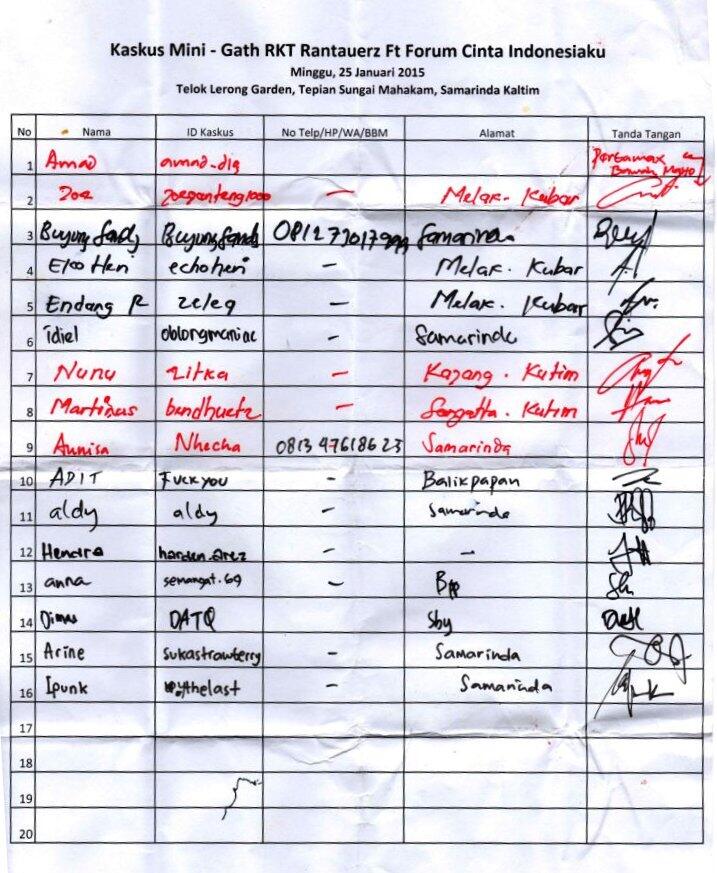 Kaskus Mini - Gath RKT Rantauerz Ft Forum Cinta Indonesiaku
Minggu, 25 Januari 2015
Telok Lerong Garden, Tepian Sungai Mahakam, Samarinda Kaltim
No Nama ID Kaskus No Telp/HP/WA/BBM Alamat Tanda Tangan
1 Amad amad-dig Pertamax
2 Joe - Melak. Kubar
3 Buyung Samarinda
4 Eko Heri echoheri - Melak. Kubar
5 Endang R zeleq - Melak. Kubar
6 idiel oblongmaniac - Samarinda
7 Nunu zitka - Kutim
8 Martinus - Sangatta. Kutim
9 Annisa Nhecha 081347618623 Samarinda
10 ADIT Fuckyou - Balikpapan
11 aldy aldy - Samarinda
12 Hendra - -
13 anna semangat.69 - Bpp
14 Dimas DATQ Sby
15 Arine sukastrawberry Samarinda
16 Ipunk Samarinda
17
18
19
20